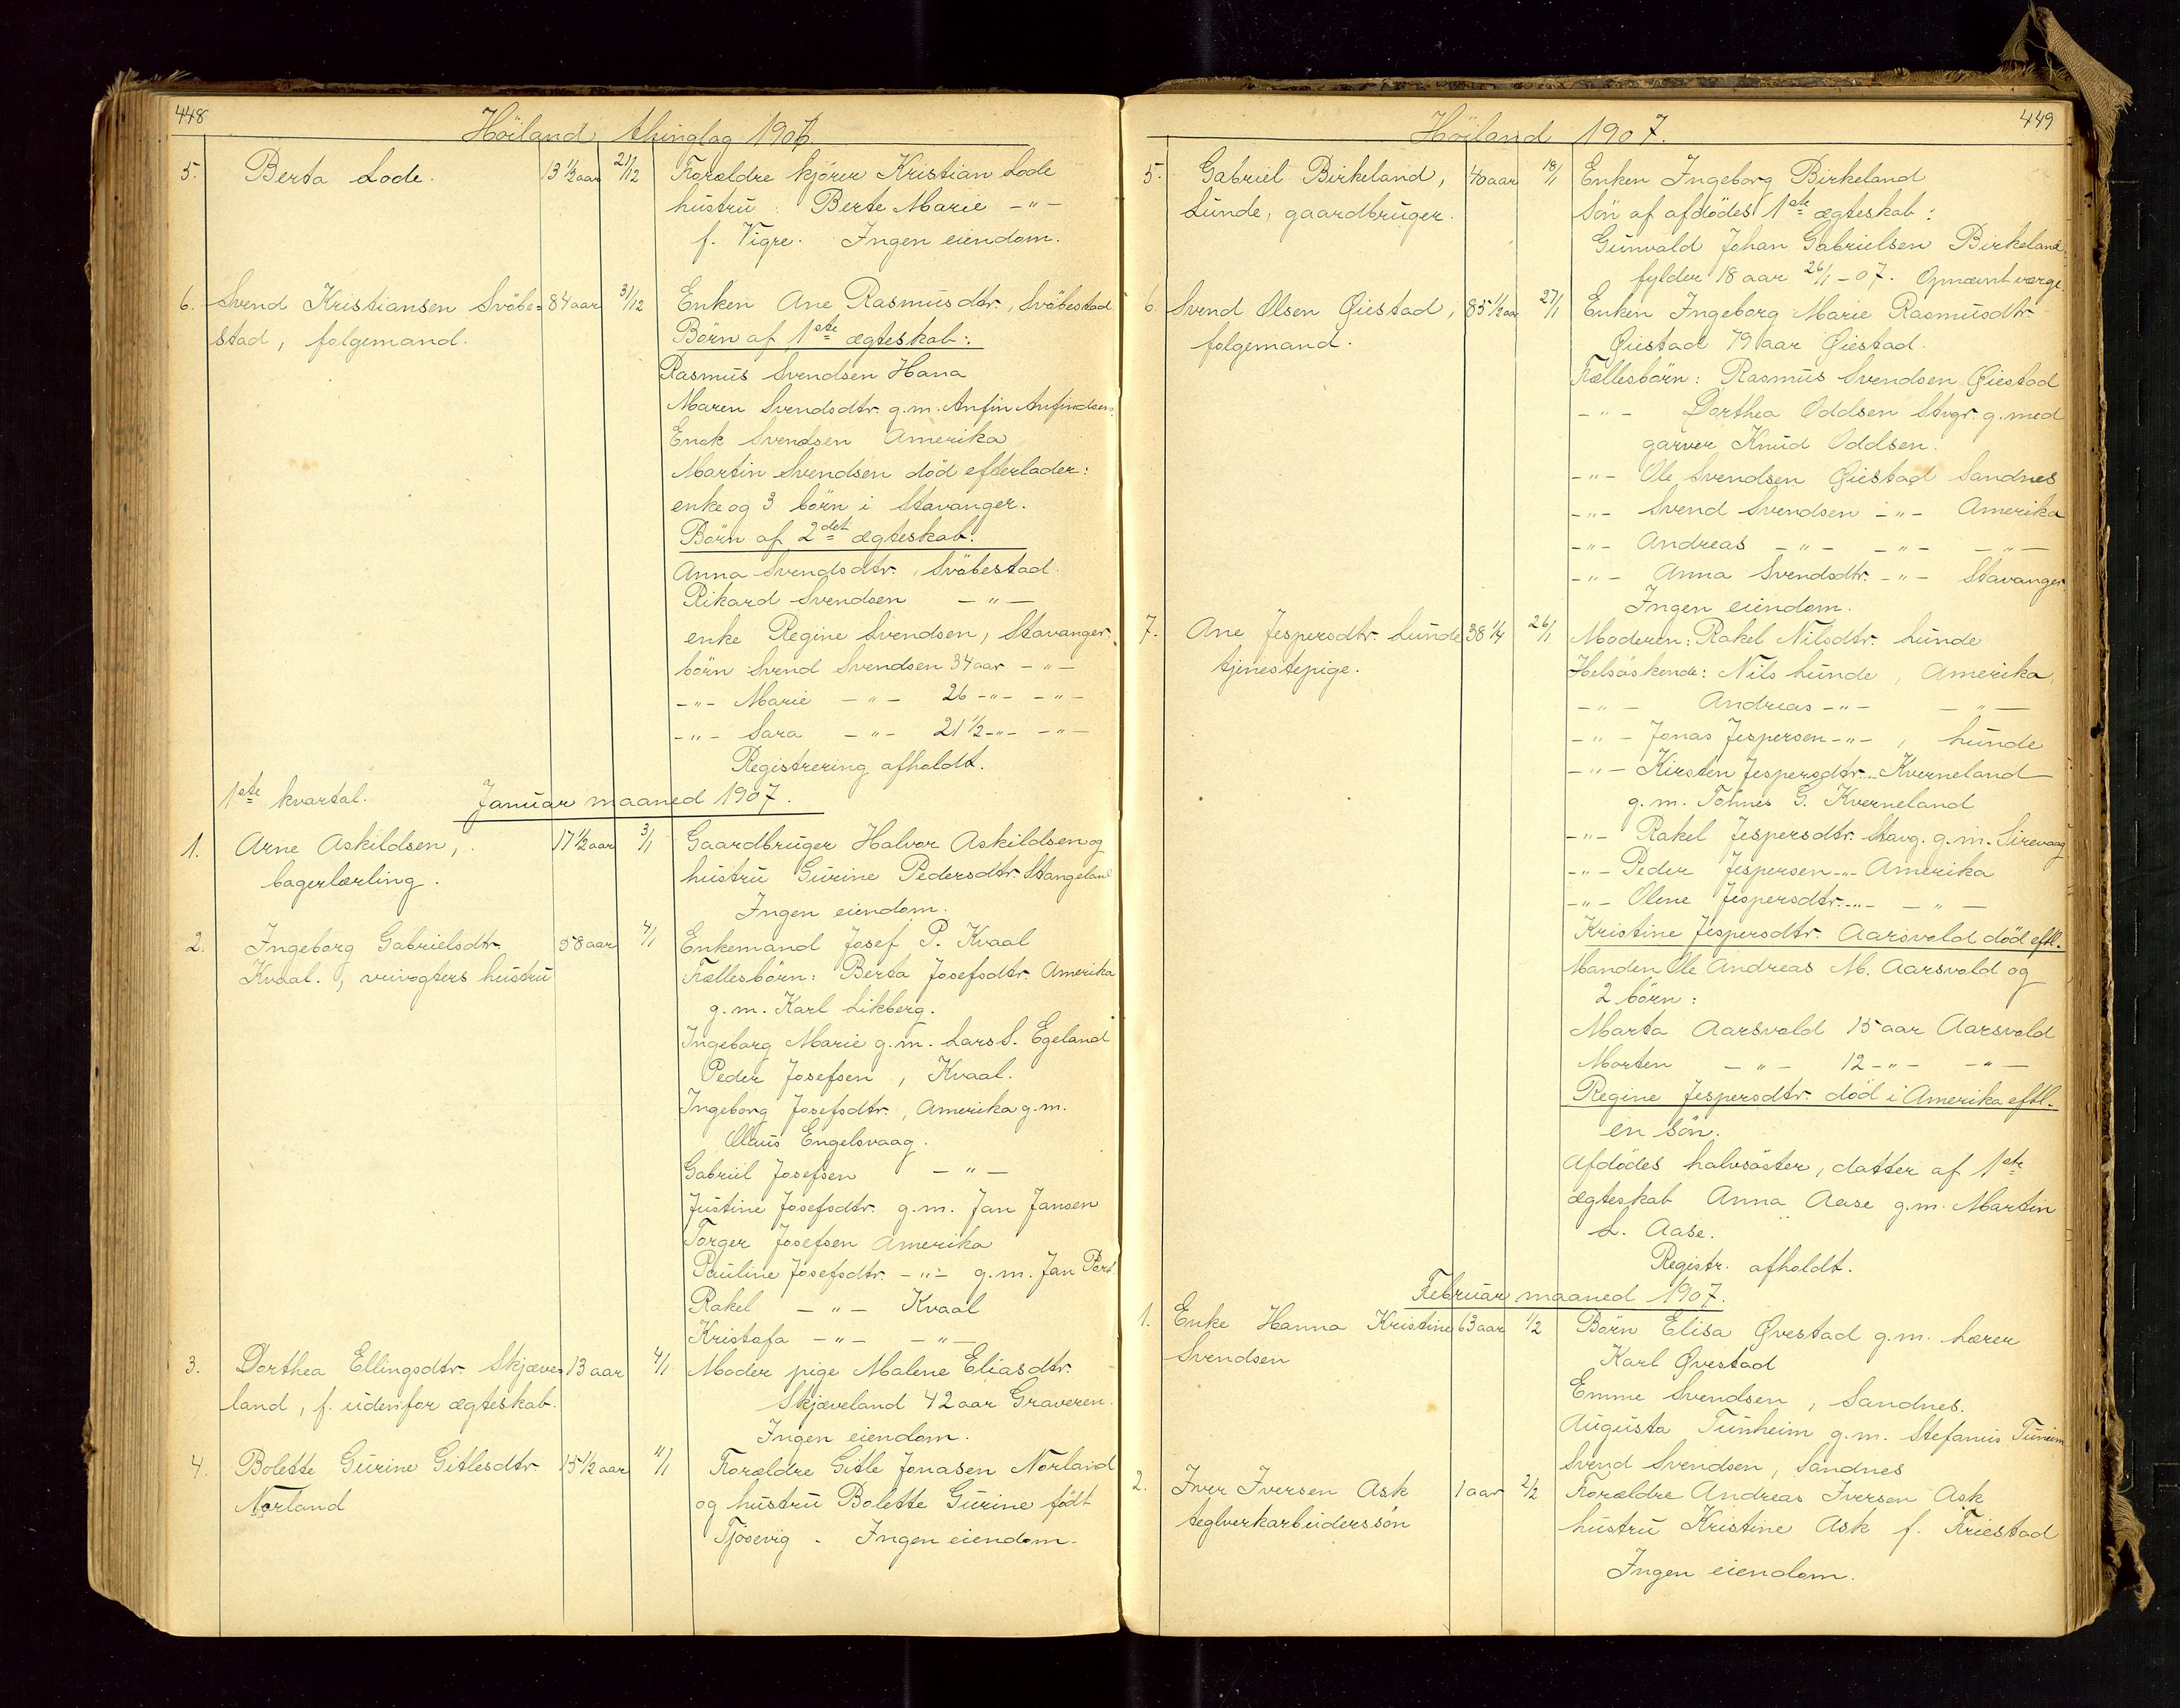 448
Höiland thinglag 1906.
5. Berta Lode. 13 1/2 aar 21/12 Forældre kjörer Kristian Lode
hustru Berte Marie -"-
f. Vigre. Ingen eiendom.
6. Svend Kristiansen Svöbe= 84 aar 31/12 Enken Ane Rasmusdtr., Svöbestad
stad, folgemand. Börn af 1ste ægteskab:
Rasmus Svendsen Hana
Maren Svendsdtr. g.m. Anfin Anfindsen.
Enok Svendsen Amerika
Martin Svendsen död efterlader:
enke og 3 börn i Stavanger.
Börn af 2det ægteskab.
Anna Svendsdtr., Svöbestad.
Rikard Svendsen -"-
enke Regine Svendsen, Stavanger.
börn Svend Svendsen 34 aar -"-
-"- Marie -"- 26 -"- -"-
-"- Sara -"- 21 1/2 -"- -"-
Registrering afholdt.
1ste kvartal. Januar maaned 1907.
1. Arne Askildsen, 17 1/2 aar 3/1 Gaardbruger Halvor Askildsen og
bagerlærling. hustru Gurine Pedersdtr. Stangeland
Ingen eiendom.
2. Ingeborg Gabrielsdtr. 58 aar 4/1 Enkemand Josef P. Kvaal
Kvaal., veivogters hustru Fællesbörn: Berta Josefsdtr. Amerika
g.m. Karl Likberg.
Ingeborg Marie g.m. Lars S. Egeland
Peder Josefsen, Kvaal.
Ingeborg Josefsdtr., Amerika g.m.
Olaus Engelsvaag.
Gabriel Josefsen -"-
Justine Josefsdtr. g.m. Jan Jansen
Torger Josefsen Amerika
Pauline Josefsdtr. -"- g.m. Jan
Rakel -"- Kvaal
Kristofa -"- -"-
3. Dorthea Ellingsdtr. Skjæve= 13 aar 4/1 Moder pige Malene Eliasdtr.
land, f. udenfor ægteskab. Skjæveland 42 aar Graveren.
Ingen eiendom.
4. Bolette Gurine Gitlesdtr. 15 1/2 aar 11/1 Forældre Gitle Jonasen Norland
Norland og hustru Bolette Gurine födt
Tjösevig. Ingen eiendom.
449
Höiland 1907.
5. Gabriel Birkeland, 40 aar 18/1 Enken Ingeborg Birkeland
Lunde, gaardbruger. Sön af afdödes 1ste ægteskab:
Gunvald Johan Gabrielsen Birkeland
fylder 18 aar 26/1-07. Opnævnt værge.
6. Svend Olsen Øiestad, 85 1/2 aar 27/1 Enken Ingeborg Marie Rasmusdtr
folgemand. Øiestad 79 aar Øiestad.
Fællesbörn: Rasmus Svendsen Øiestad
-"- Dorthea Oddsen Stvgr. g.med
garver Knud Oddsen.
-"- Ole Svendsen Øiestad Sandnes
-"- Svend Svendsen -"- Amerika
-"- Andreas -"- -"- -"-
-"- Anna Svendsdtr. -"- Stavanger
Ingen eiendom.
7. Ane Jespersdtr. Lunde 38 1/4 26/1 Moderen: Rakel Nilsdtr. Lunde
tjenestepige. Helsöskende: Nils Lunde, Amerika.
-"- Andreas -"- -"-
-"- Jonas Jespersen -"-, Lunde
-"- Kirsten Jespersdtr. Kverneland
g.m. Tönnes G. Kverneland
-"- Rakel Jespersdtr. Stavg. g.m. Sirevaag
-"- Peder Jespersen -"- Amerika
-"- Olene Jespersdtr. -"- -"-
Kristine Jespersdtr. Aarsvold död eftl.
Manden Ole Andreas M. Aarsvold og
2 börn:
Marta Aarsvold 15 aar Aarsvold
Morten -"- 12 -"- -"-
Regine Jespersdtr. död i Amerika eftl.
en sön.
Afdödes halvsöster, datter af 1ste
ægteskab Anna Aase g.m. Martin
L. Aase.
Registr. afholdt.
Februar maaned 1907.
1. Enke Hanna Kristine 63 aar 1/2 Börn Elisa Øvestad g.m. lærer
Svendsen Karl Øvestad
Emme Svendsen, Sandnes.
Augusta Tunheim g.m. Stefanus Tuneim
Svend Svendsen, Sandnes
2. Iver Iversen Ask 1 aar 2/2 Forældre Andreas Iversen Ask
teglverkarbeiderssön hustru Kristine Ask f. Friestad
Ingen eiendom.